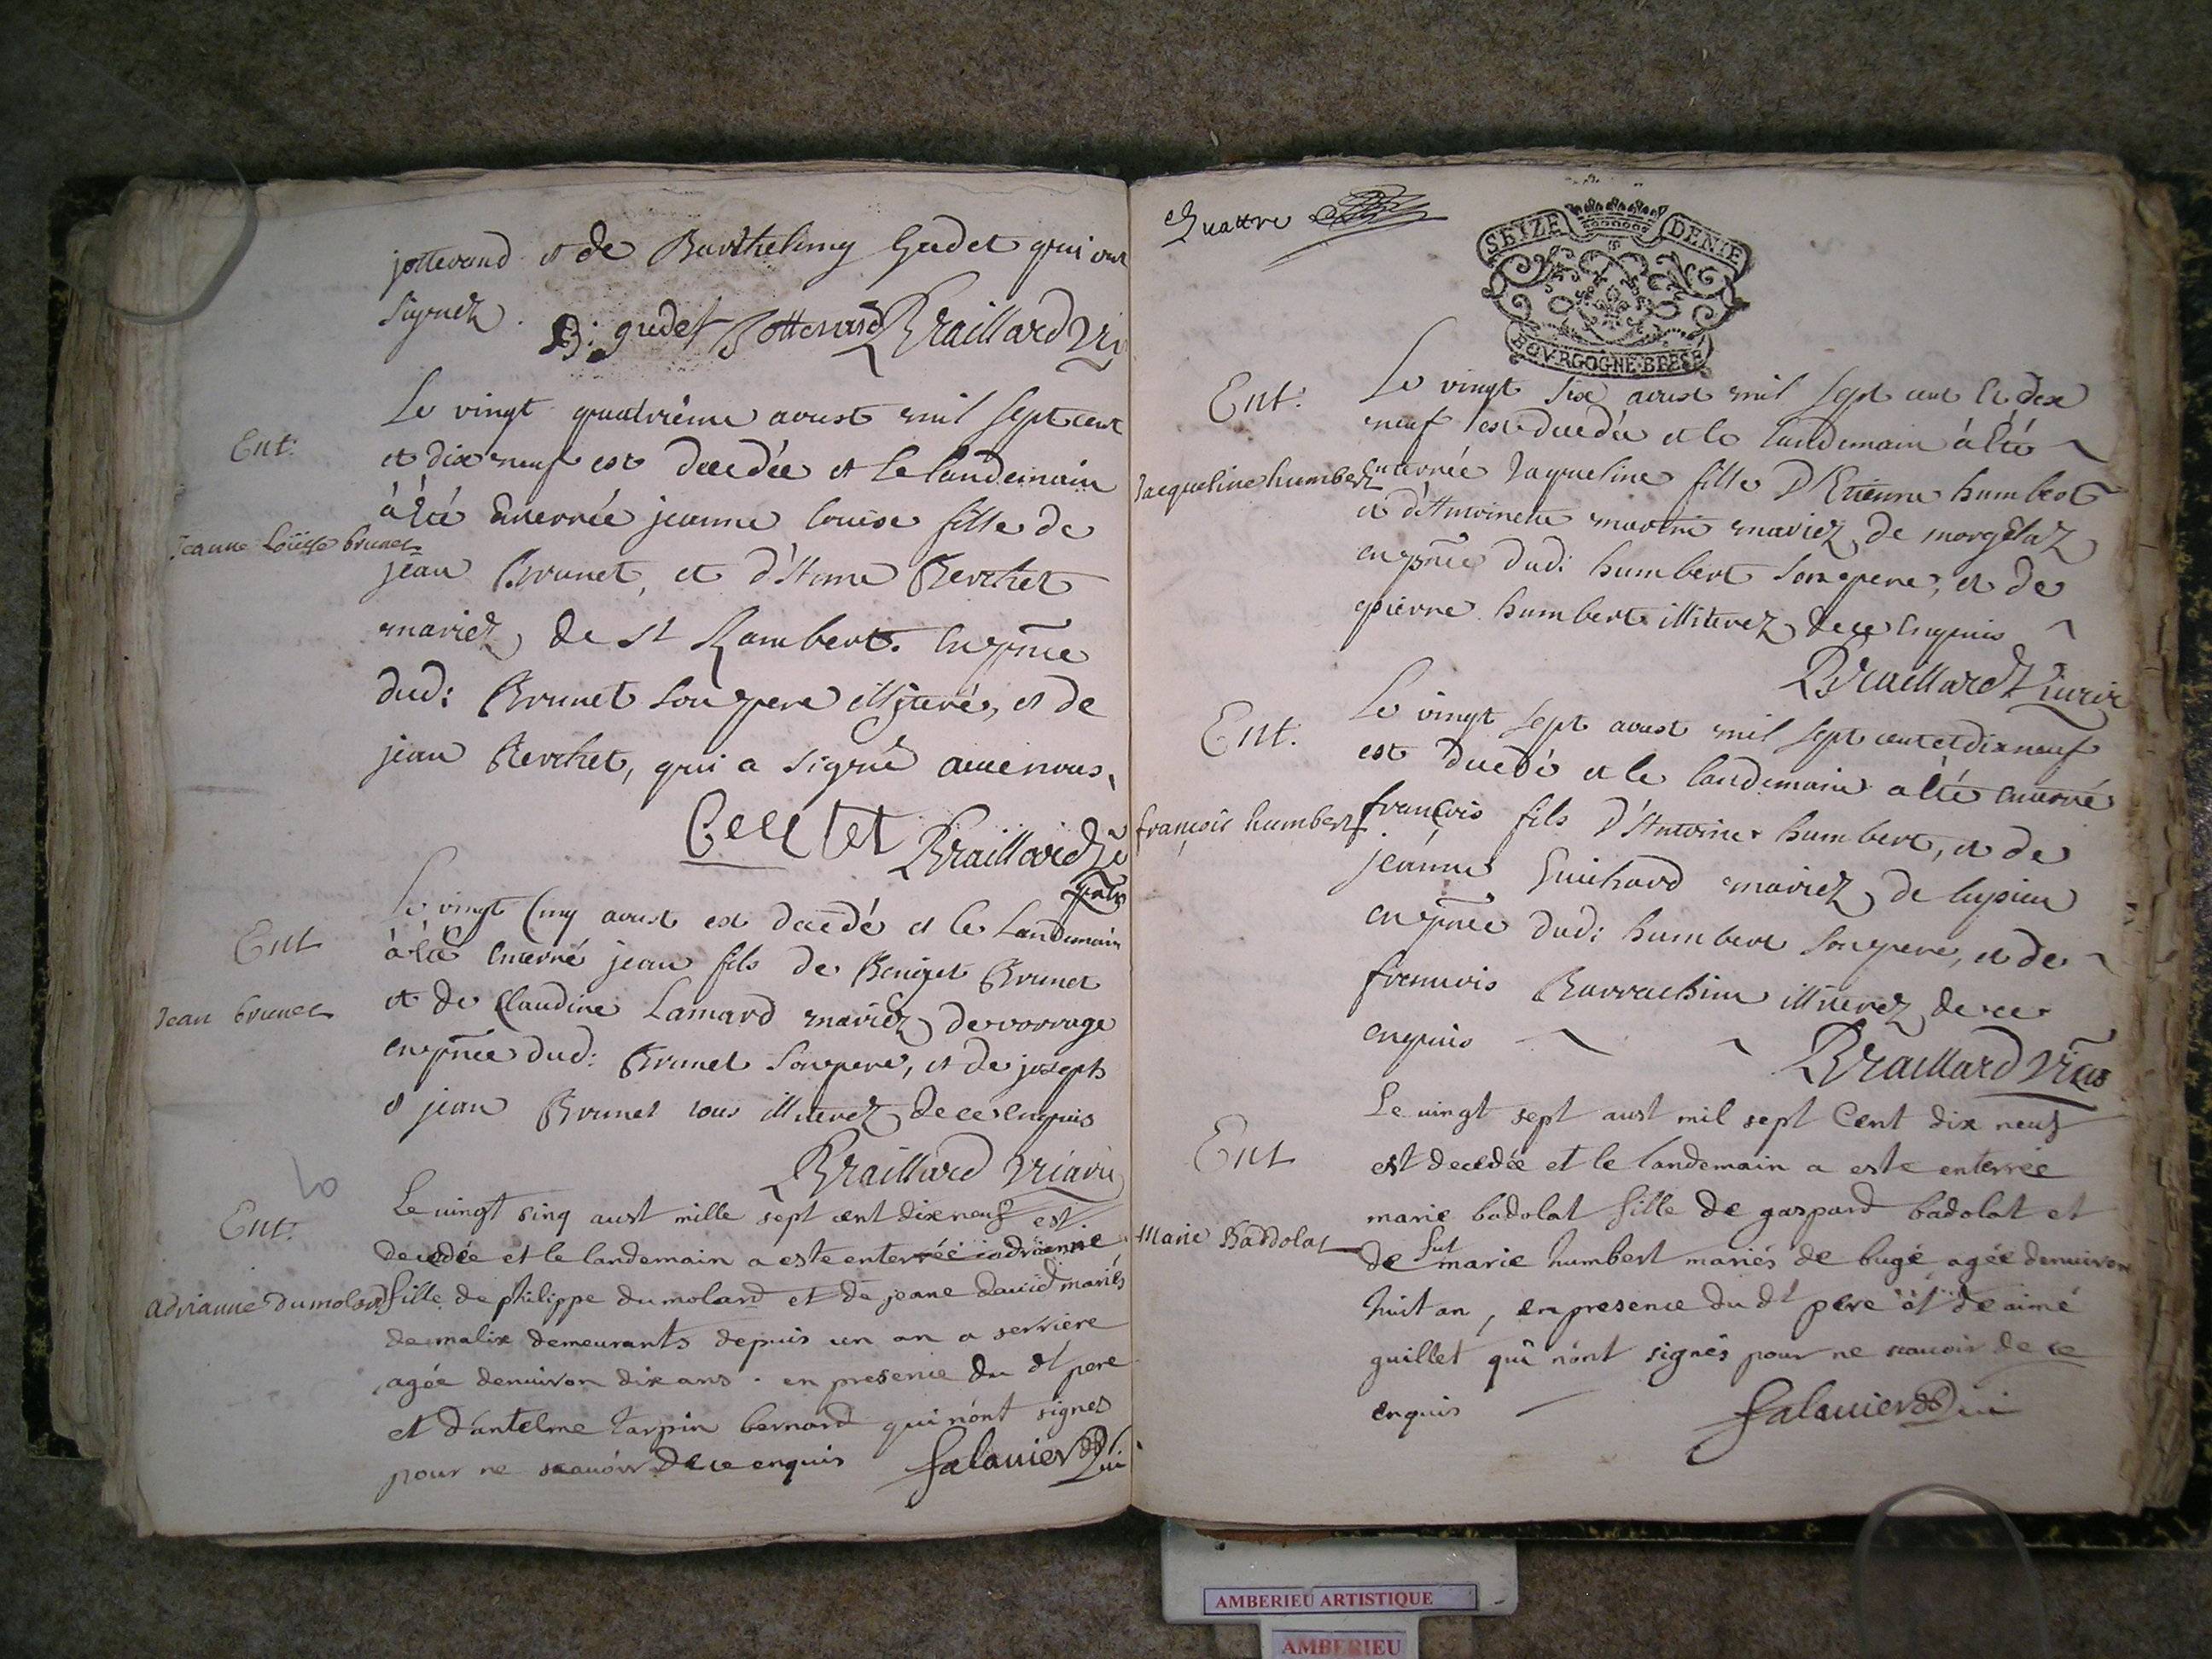 jottevand et de Barthelemy Gudet qui ont
signez.
B: gudet Jottevand Braillard
Ent:
Jeanne Loüise brunet
Le vingt quatrième aoust mil sept cent
et dix neuf est decedée et le landemain
à été enterrée jeanne louise fille de
jean Brunet, et d'Anne Berchet
mariez de st Rambert. en pñce
dud: Brunet son pere illiteré, et de
jean Berchet, qui a signé avec nous,
Braillard
Ent
Jean brunet
Le vingt cinq aoust est decedé et le landemain
à été enterré jean fils de Benoit Brunet
et de Claudine Lamard mariez de vorage
en pñce dud: Brunet son pere, et de joseph
et jean Brunet tous illiterez de ce enquis
Braillard Vicaire
Ent:
adrianne Dumolard
Le vingt sinq aust mille sept cent dix neuf est
decedée et le landemain a este enterrée adrienne
fille de philippe dumolard et de jeane david mariés
de malix demeurants depuis un an a serriere
agée denuiron dix ans. en presence du dt pere
et d'antelme tarpin bernard qui n'ont signes
pour ne scauoir de ce enquis falauier
Quattre
SEIZE DENIE
BOVRGOGNE·BRESE
Ent:
Jacqueline humbert
Le vingt six aoust mil sept cent et dix
neuf est decedée et le landemain à été
enterrée Jaqueline fille D'Etienne humbert
et d'Antoinette martin mariez de morgelaz
en pñce dud: humbert son pere, et de
pierre humbert illiterez de ce enquis
Braillard Vicaire
Ent.
françois humbert
Le vingt sept aoust mil sept cent et dix neuf
est decedé et le landemain a été enterré
françois fils d'Antoine humbert, et de
jeanne Guichard mariez de lupieu
en pñce dud: humbert son pere, et de
francois Barrachin illiterez de ce
enquis
Braillard
Ent
Marie Baddolat
Le uingt sept aust mil sept Cent dix neuf
est decedée et le landemain a este enterrée
marie badolat fille de gaspard badolat et
de fut marie humbert mariés de bugé agée denuiron
huit an, en presence du dt pere et de aimé
guillet qui n'ont signés pour ne scauoir de ce
enquis
falauier
AMBERIEU ARTISTIQUE
AMBERIEU